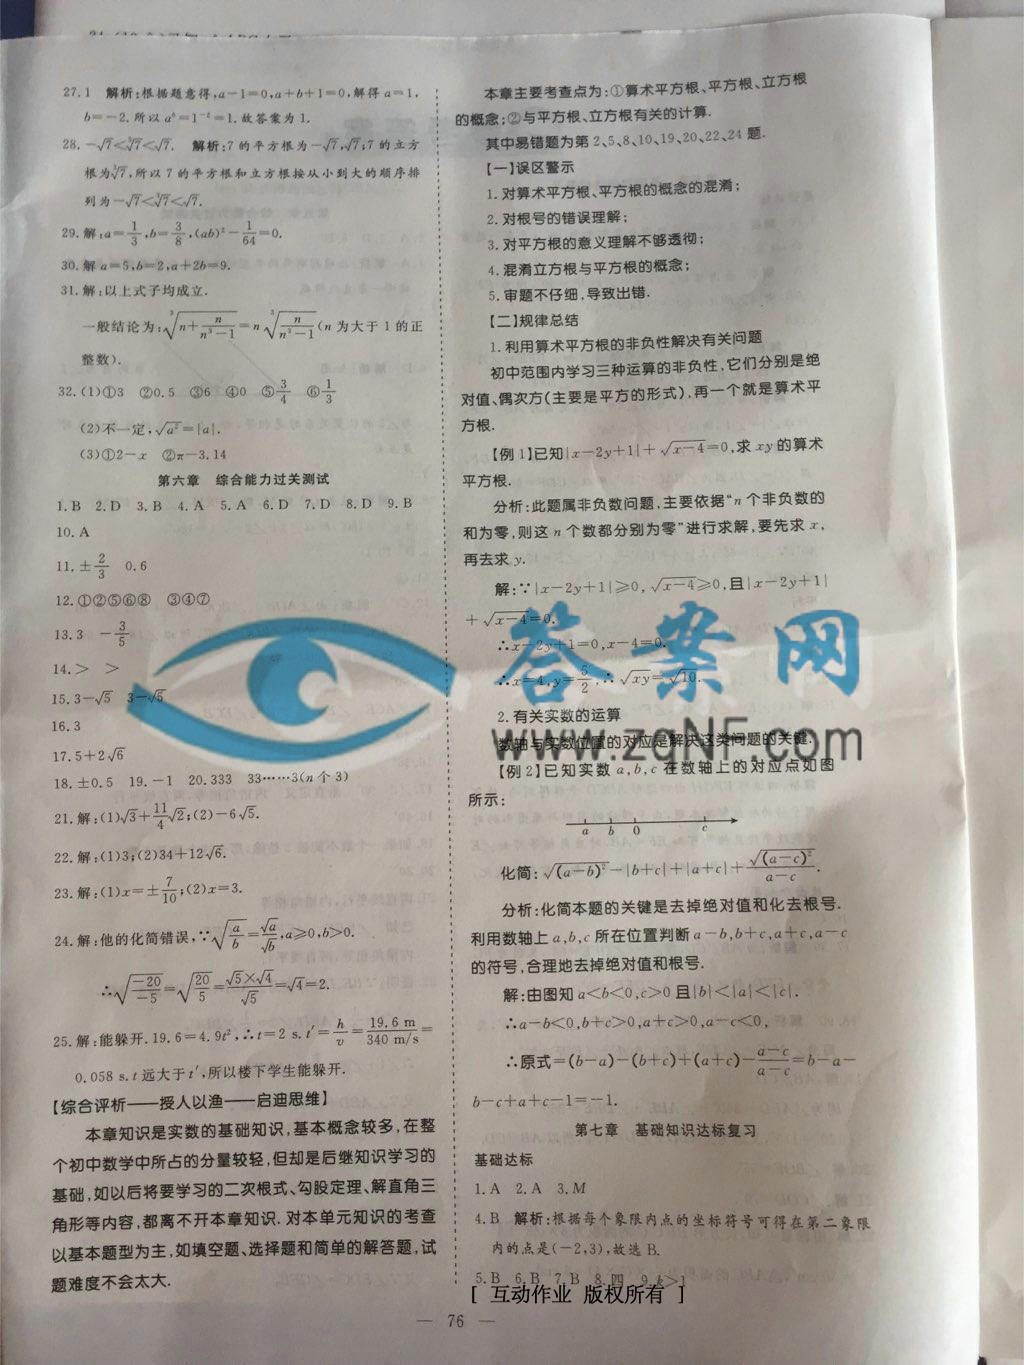 27.1 解析:根据题意得,a-1=0,a+b+1=0,解得a=1,
b=-2.所以a^b=1^{-2}=1.故答案为1.
28.-√7<∛7<√7. 解析:7的平方根为-√7,√7;7的立方
根为∛7,所以7的平方根和立方根按从小到大的顺序排
列为-√7<∛7<√7.
29.解:a=1/3,b=3/8,(ab)²-1/64=0.
30.解a=5,b=2,a+2b=9.
31.解:以上式子均成立.
一般结论为:∛(n+n/(n³-1))=n∛(n/(n³-1))(n为大于1的正
整数).
32.(1)①3 ②0.5 ③6 ④0 ⑤3/4 ⑥1/3
(2)不一定,√a²=|a|.
(3)①2-x ②π-3.14
第六章 综合能力过关测试
1.B 2.D 3.B 4.A 5.A 6.D 7.D 8.D 9.B
10.A
11.±2/3 0.6
12.①②⑤⑥⑧ ③④⑦
13.3 -3/5
14.> >
15.3-√5 3-√5
16.3
17.5+2√6
18.±0.5 19.-1 20.333 33……3(n个3)
21.解:(1)√3+11/4√2;(2)-6√5.
22.解:(1)3;(2)34+12√6.
23.解:(1)x=±7/10;(2)x=3.
24.解:他的化简错误,∵√(a/b)=√a/√b,a≥0,b>0.
∴√(-20/-5)=√(20/5)=(√5×√4)/√5=√4=2.
25.解:能躲开.19.6=4.9t²,∴t=2 s.t′=h/v=19.6 m/340 m/s=
0.058 s.t远大于t′,所以楼下学生能躲开.
【综合评析——授人以渔——启迪思维】
本章知识是实数的基础知识,基本概念较多,在整
个初中数学中所占的分量较轻,但却是后继知识学习的
基础,如以后将要学习的二次根式、勾股定理、解直角三
角形等内容,都离不开本章知识.对本单元知识的考查
以基本题型为主,如填空题、选择题和简单的解答题,试
题难度不会太大.
本章主要考查点为:①算术平方根、平方根、立方根
的概念;②与平方根、立方根有关的计算.
其中易错题为第2、5、8、10、19、20、22、24题.
【一】误区警示
1.对算术平方根、平方根的概念的混淆;
2.对根号的错误理解;
3.对平方根的意义理解不够透彻;
4.混淆立方根与平方根的概念;
5.审题不仔细,导致出错.
【二】规律总结
1.利用算术平方根的非负性解决有关问题
初中范围内学习三种运算的非负性,它们分别是绝
对值、偶次方(主要是平方的形式),再一个就是算术平
方根.
【例1】已知|x-2y+1|+√(x-4)=0,求xy的算术
平方根.
分析:此题属非负数问题,主要依据“n个非负数的
和为零,则这n个数都分别为零”进行求解,要先求x,
再去求y.
解:∵|x-2y+1|≥0,√(x-4)≥0,且|x-2y+1|
+√(x-4)=0.
∴x-2y+1=0,x-4=0.
∴x=4,y=5/2,∴√(xy)=√10.
答案网
www.zqNF.com
2.有关实数的运算
数轴与实数位置的对应是解决这类问题的关键.
【例2】已知实数a,b,c在数轴上的对应点如图
所示:
a b 0 c
化简:√(a-b)²-|b+c|+|a+c|+√(a-c)²/(a-c).
分析:化简本题的关键是去掉绝对值和化去根号.
利用数轴上a,b,c所在位置判断a-b,b+c,a+c,a-c
的符号,合理地去掉绝对值和根号.
解:由图知a<b<0,c>0且|b|<|a|<|c|.
∴a-b<0,b+c>0,a+c>0,a-c<0,
∴原式=(b-a)-(b+c)+(a+c)-(a-c)/(a-c)=b-a-
b-c+a+c-1=-1.
第七章 基础知识达标复习
基础达标
1.A 2.A 3.M
4.B 解析:根据每个象限内点的坐标符号可得在第二象限
内的点是(-2,3),故选B.
5.B 6.B 7.B 8.四 9.k>1
[ 互动作业 版权所有 ]
— 76 —